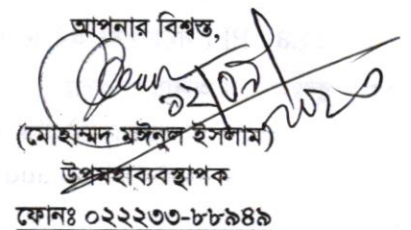 আপনার বিশ্বস্ত,
(মোহাম্মদ মঈনুল ইসলাম)
উপমহাব্যবস্থাপক
ফোনঃ ০২২২৩৩-৮৮৯৪৯